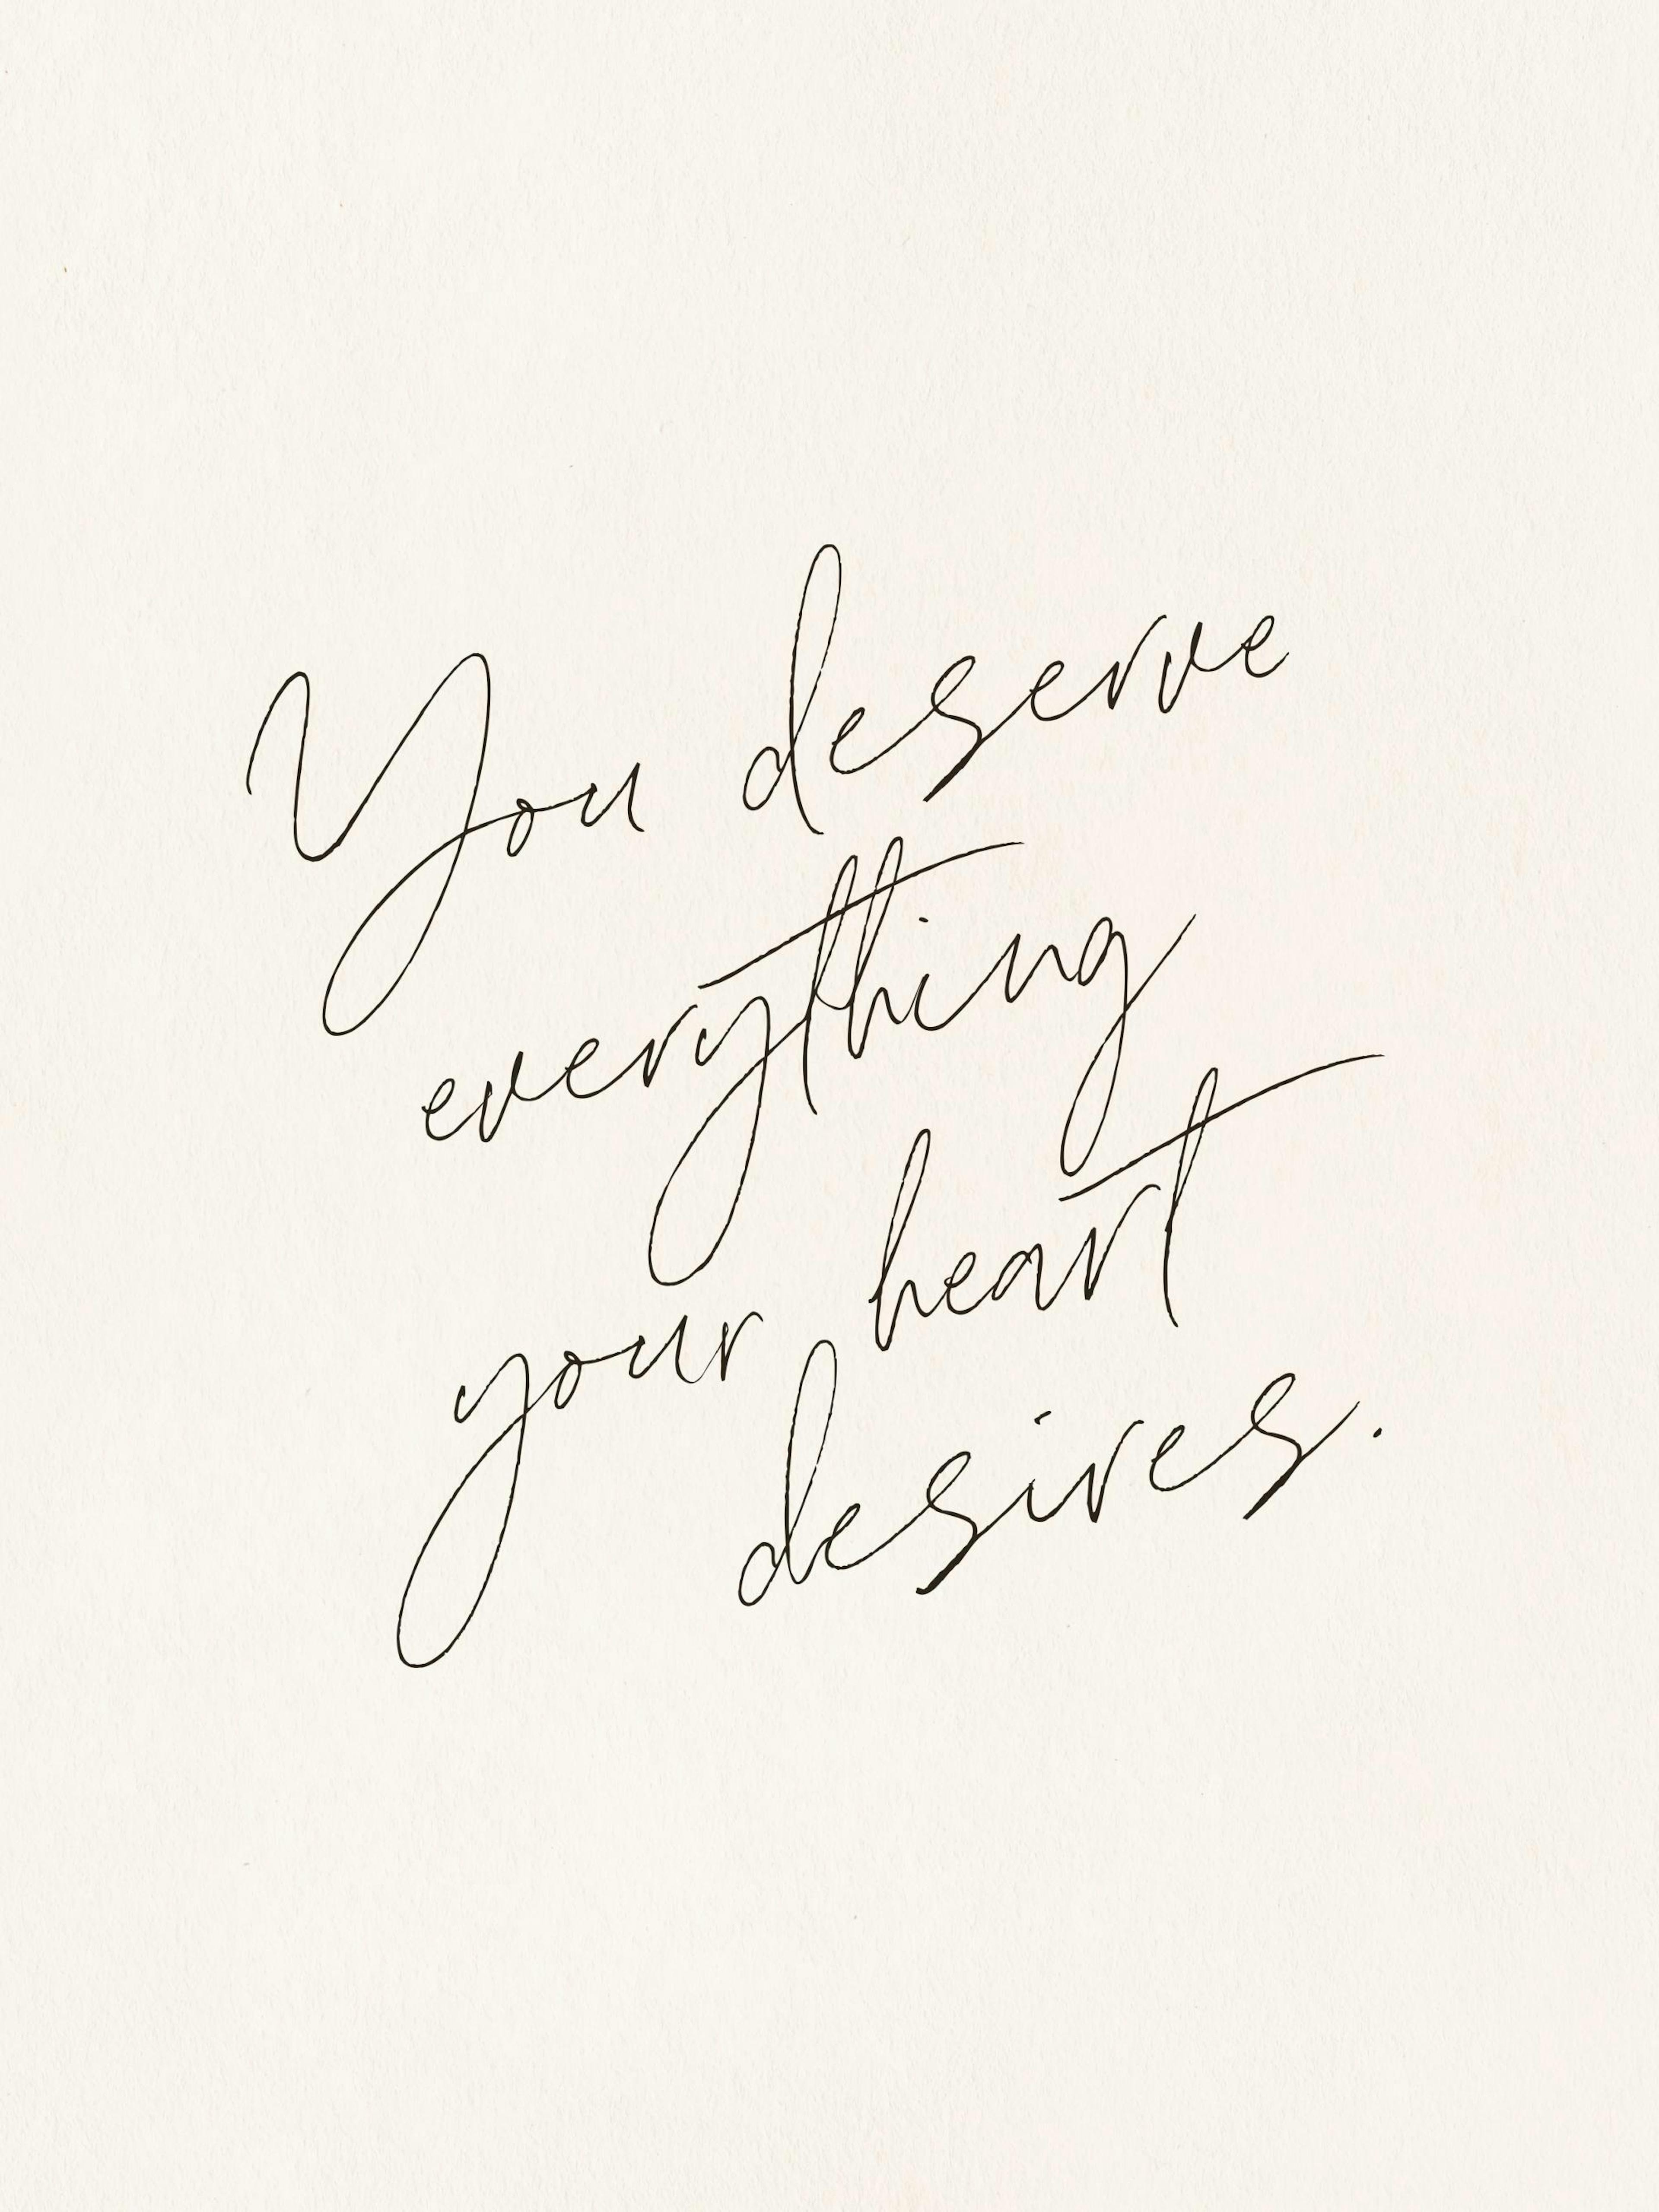 You deserve
everything
your heart
desires.